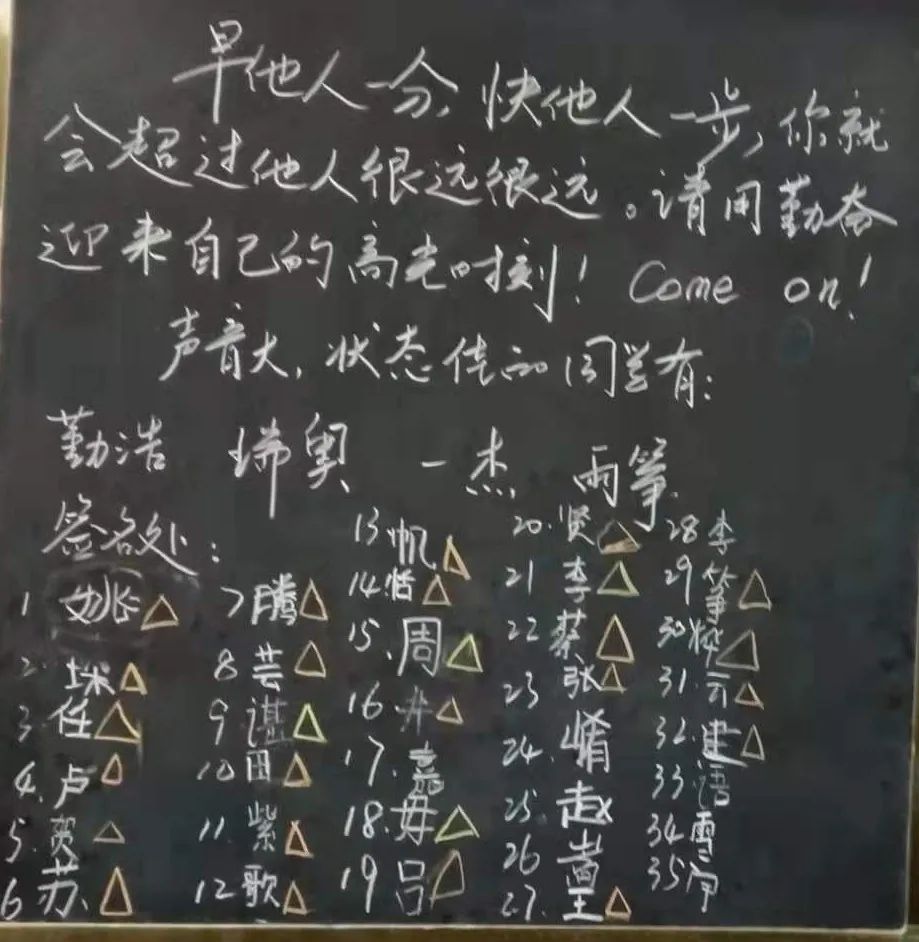 早他人一分,快他人一步,你就
会超过他人很远很远。请用勤奋
迎来自己的高光时刻！Come on!
声音大,状态佳的同学有：
勤浩 瑞奥 一杰 雨筝
签名处：
1 姚
2 垛
3 任
4. 卢
5. 贺
6 苏
7 腾
8 芸
9 谌
10 田
11. 紫
12 歌
13 帆
14 恬
15. 周
16
17. 嘉
18. 毋
19 吕
20. 贤
21 李
22 蔡
23 张
24.
25. 赵
26
27. 王
28 李
29 筝
30
31. 云
32. 建
33 语
34 雪
35